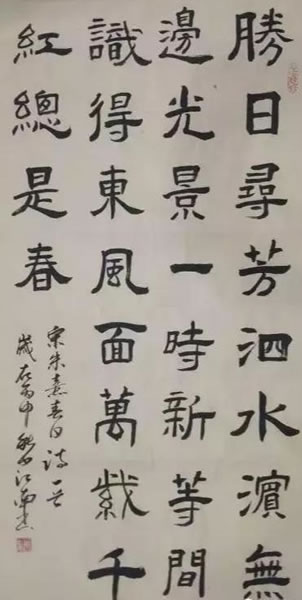 勝日尋芳泗水濱無
邊光景一時新等間
識得東風面萬紫千
紅總是春
宋朱熹春日詩一首
歲在丙申